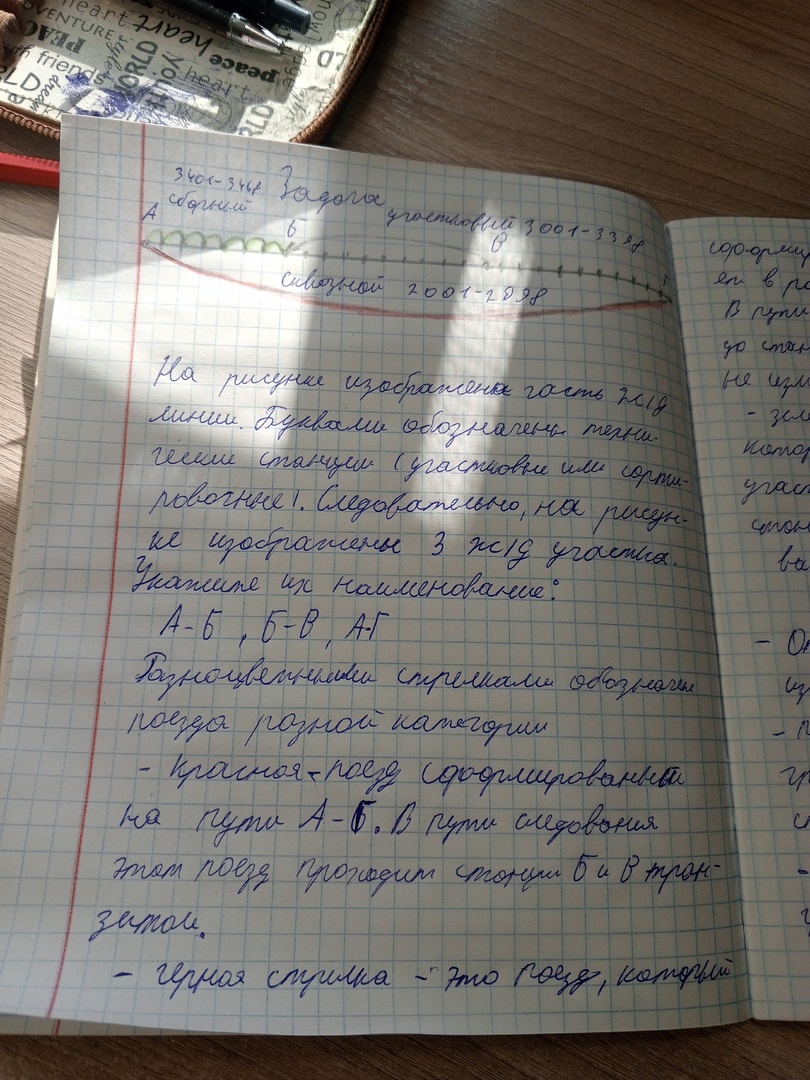 heart
ADVENTURE
PEACE
style
heart
friends
WORLD
enjoy
peace
heart
dream
WORLD
3401-3468 Задача
сборный
А
участковый 3001-3398
Б
В
Г
Сквозной 2001-2898
На рисунке изображена часть ж/д
линии. Буквами обозначены техни-
ческие станции (участковые или сорти-
ровочные). Следовательно, на рисун-
ке изображены 3 ж/д участка.
Укажите их наименование:
А-Б, Б-В, А-Г
Разноцветными стрелками обозначены
поезда разной категории
- Красная - поезд сформированный
на пути А-Б. В пути следования
этот поезд проходит станции Б и В тран-
зитом.
- Чёрная стрелка - это поезд, который
сформир
ят в ра
В пути
до стан
не изм
- зел
котор
участ
стан
ва
- От
из
- П
гр
с
-